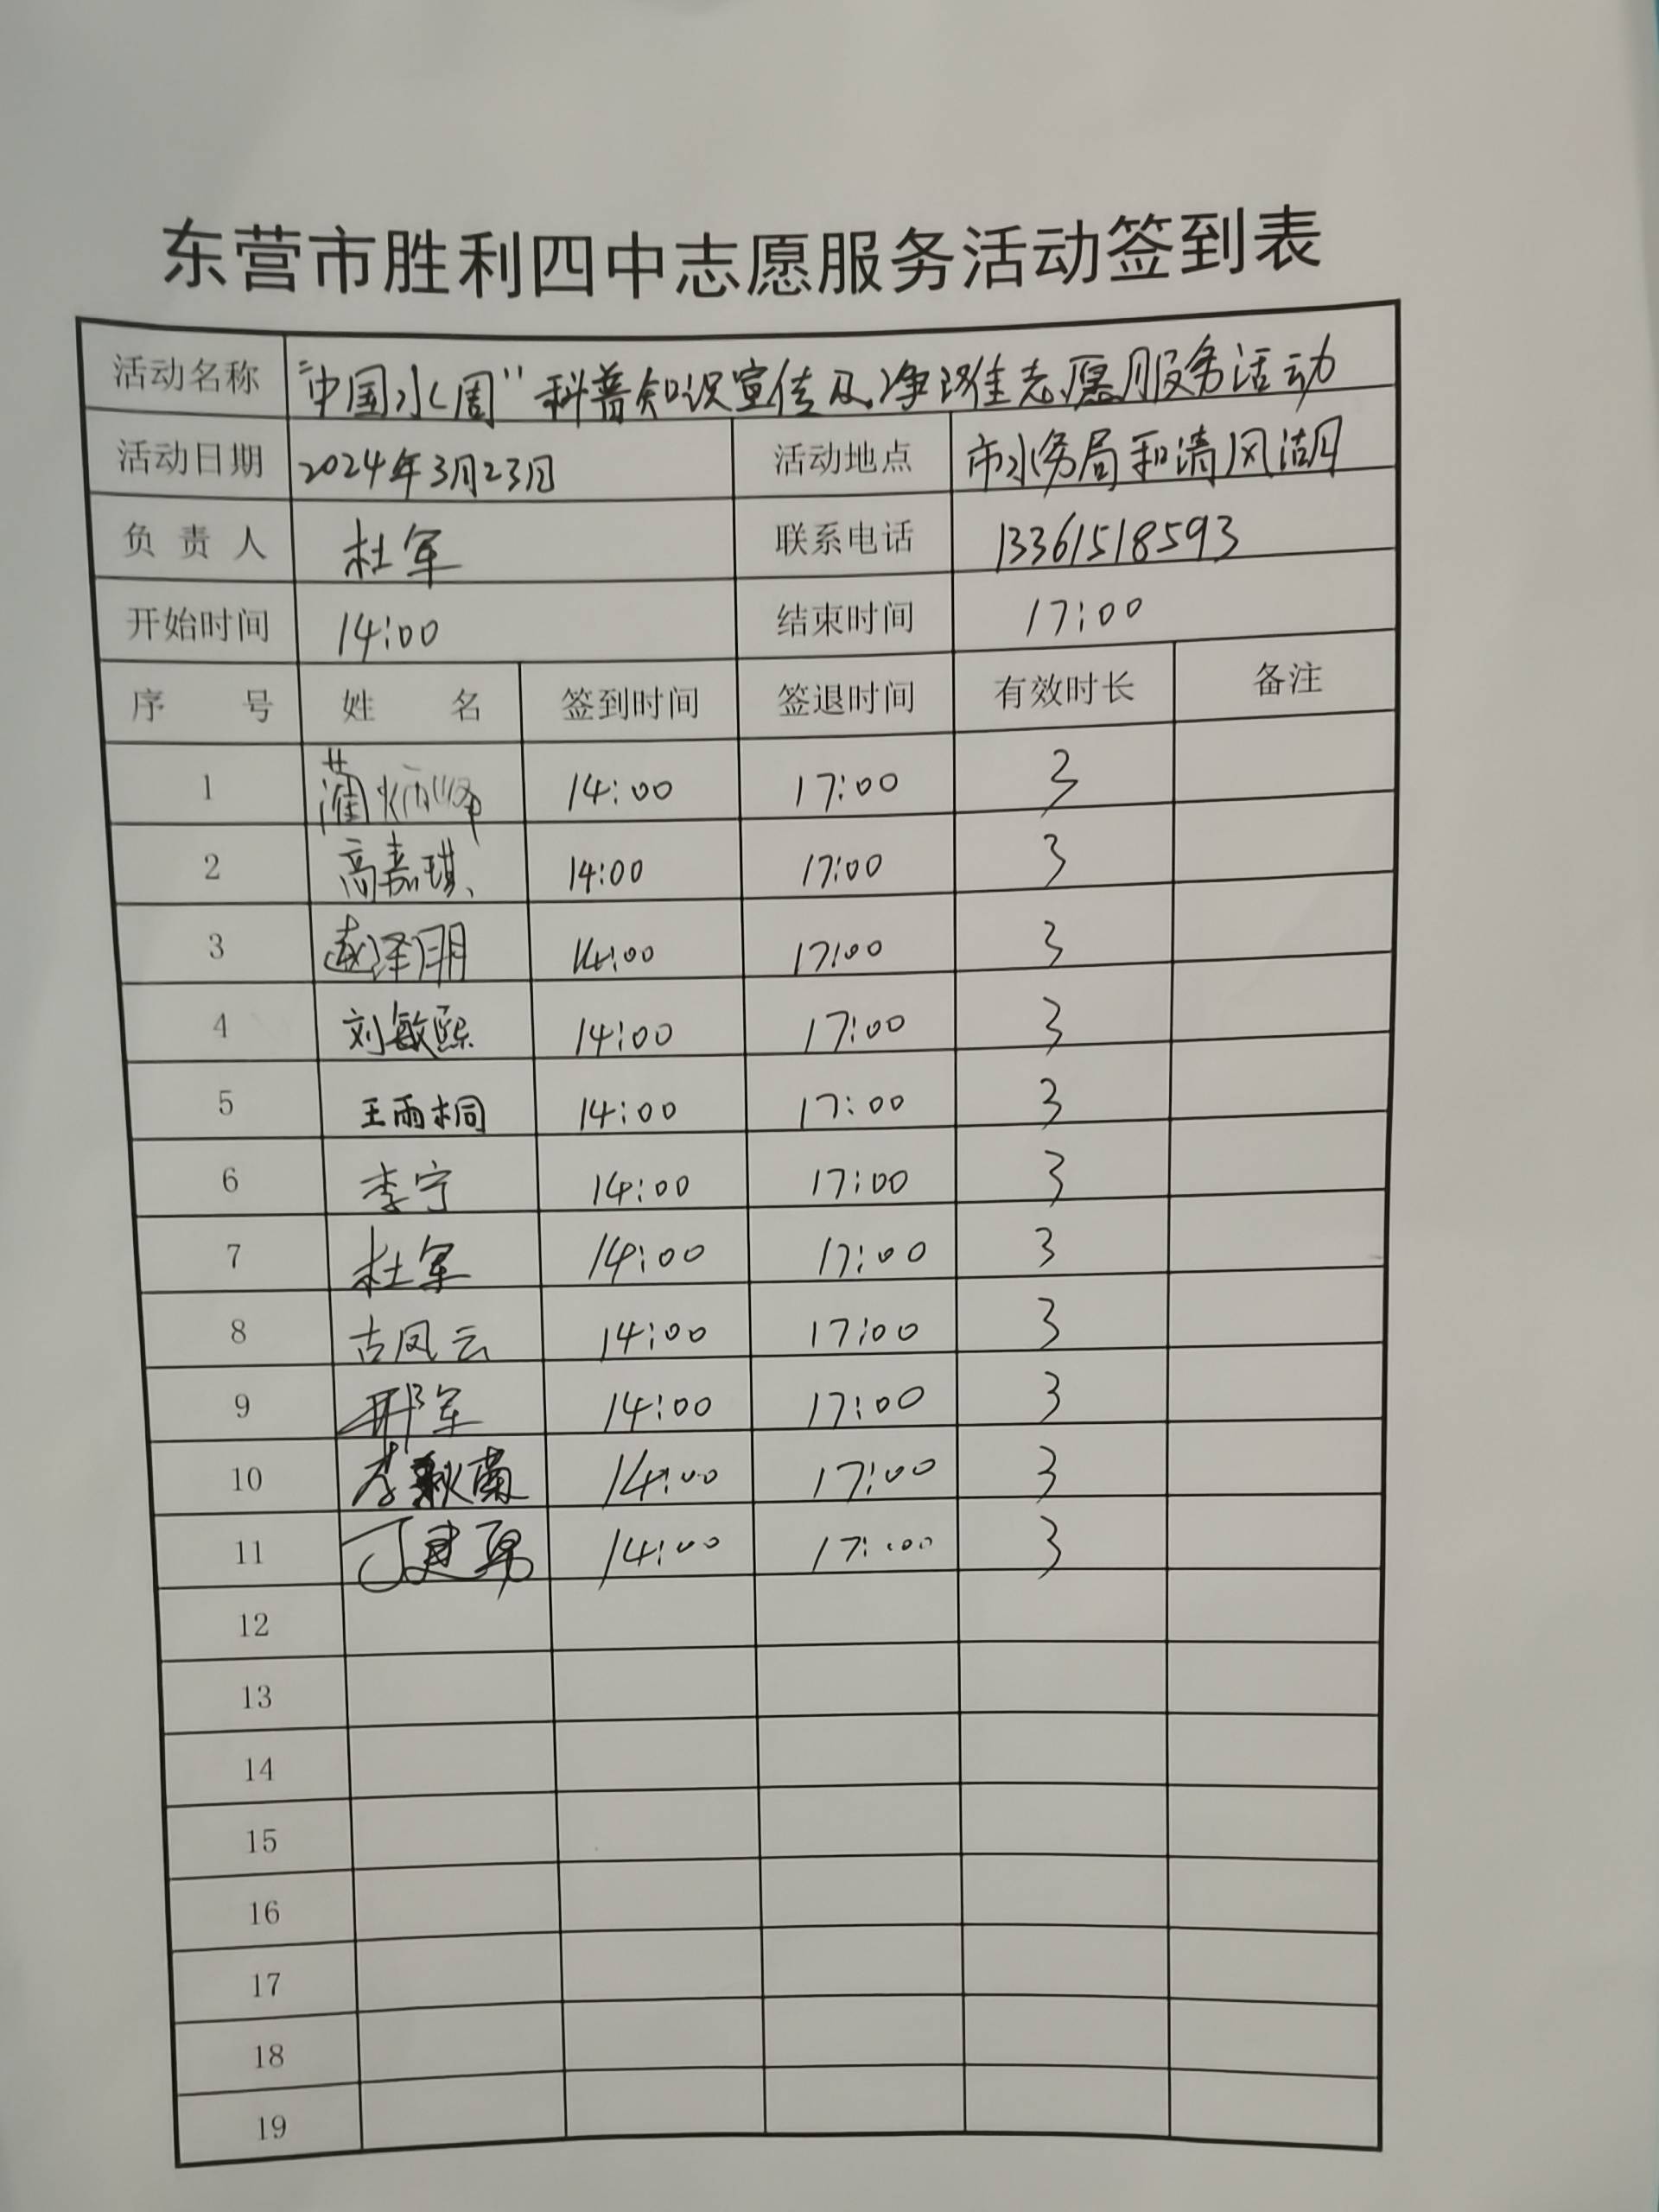 东营市胜利四中志愿服务活动签到表
活动名称 "中国水周"科普知识宣传及净滩志愿服务活动
活动日期 2024年3月23日 活动地点 市水务局和清风湖
负责人 杜军 联系电话 13361518593
开始时间 14:00 结束时间 17:00
序号 姓名 签到时间 签退时间 有效时长 备注
1 14:00 17:00 3
2 高嘉琪 14:00 17:00 3
3 赵泽明 14:00 17:00 3
4 刘敏熙 14:00 17:00 3
5 王雨桐 14:00 17:00 3
6 李宁 14:00 17:00 3
7 杜军 14:00 17:00 3
8 古凤云 14:00 17:00 3
9 邢军 14:00 17:00 3
10 李秋菊 14:00 17:00 3
11 丁建勇 14:00 17:00 3
12
13
14
15
16
17
18
19